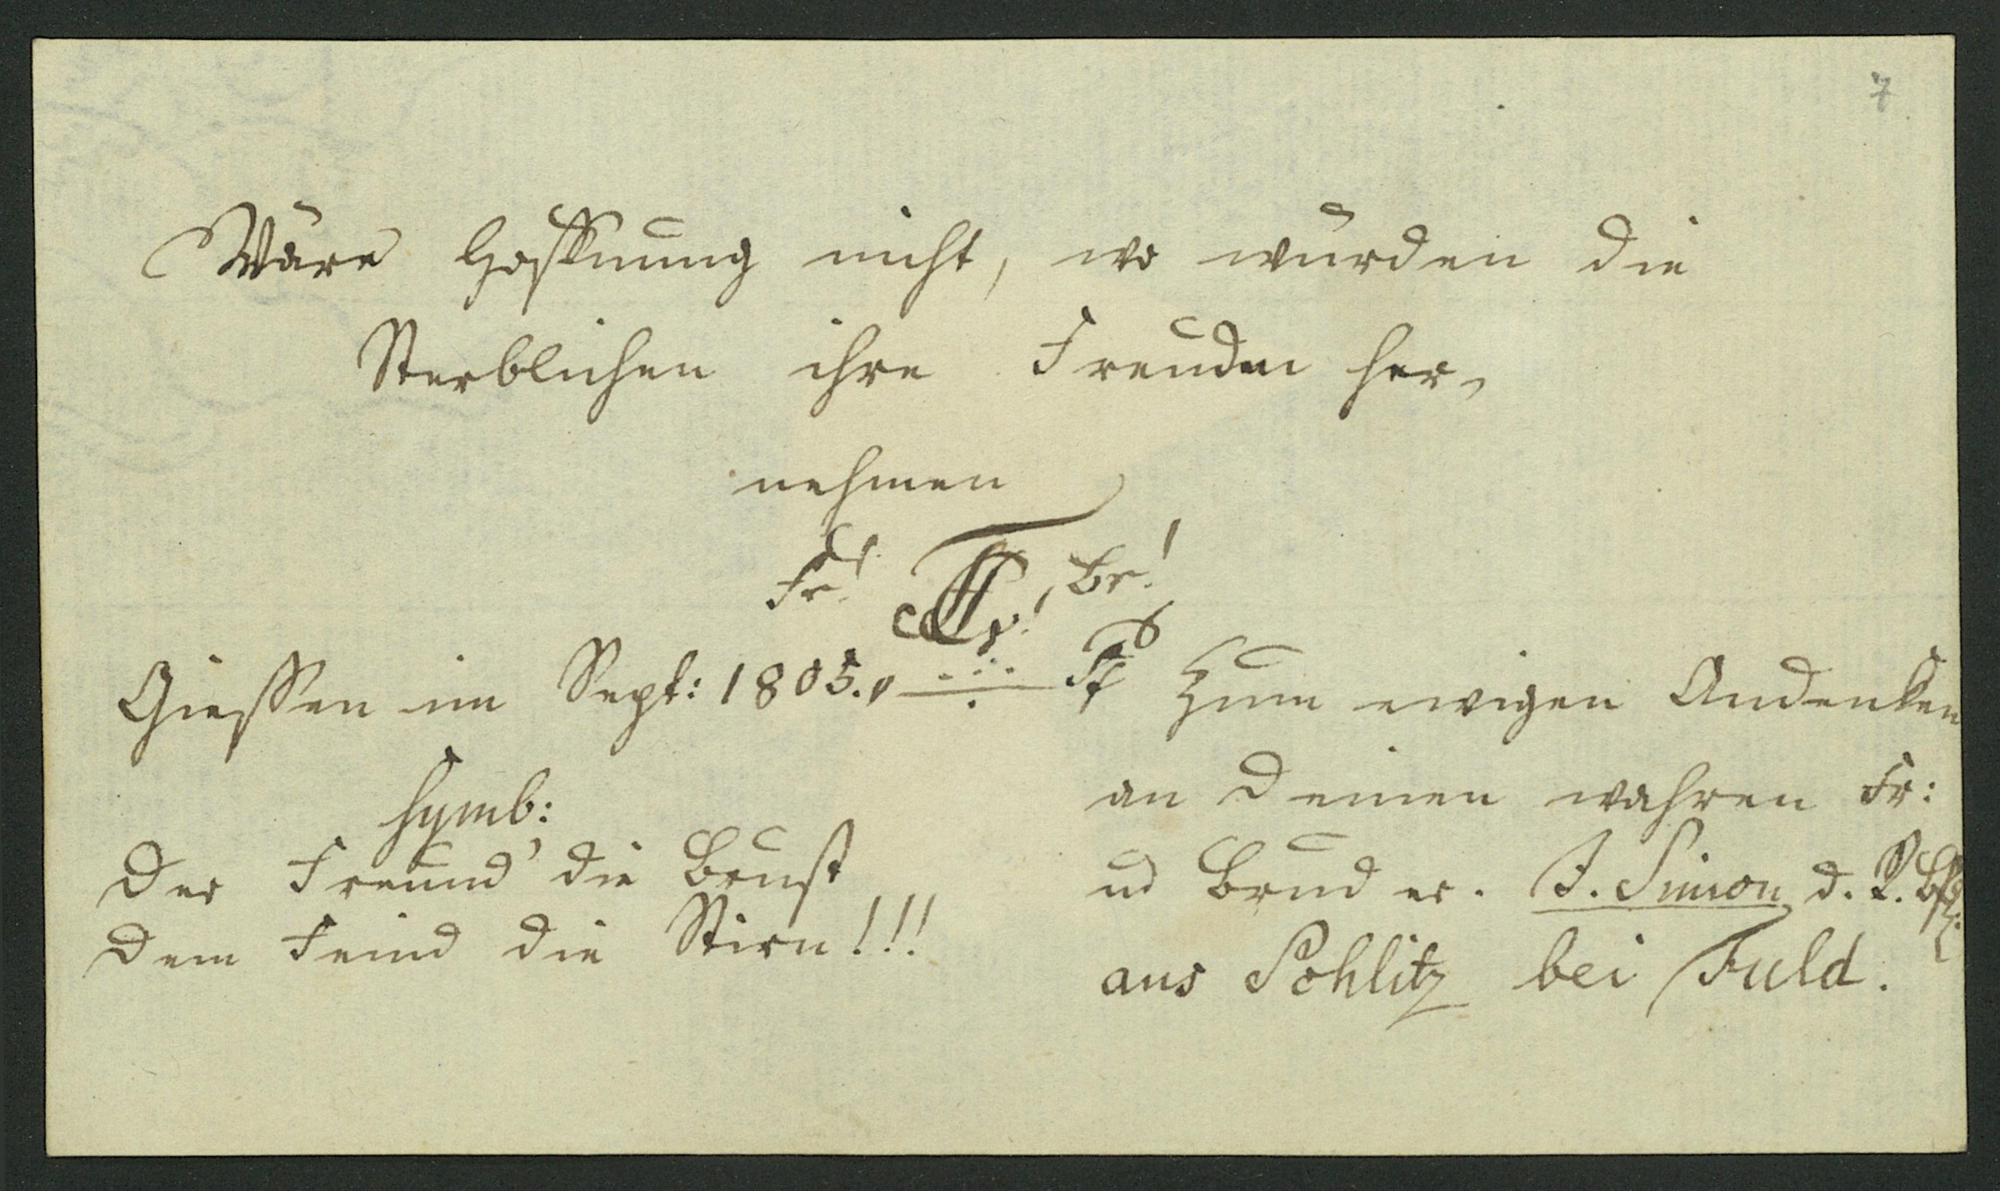 7
Wäre Hoffnung nicht, wo würden die
Sterblichen ihre Freuden her-
nehmen
Fr! Br!
Giessen im Sept: 1805.
Symb:
Der Freund' die Brust
Dem Feind die Stirn!!!
Zum ewigen Andenken
an Deinen wahren Fr:
ud Bruder. J. Simon d. R. Bfl:
aus Pohlitz bei Fuld.